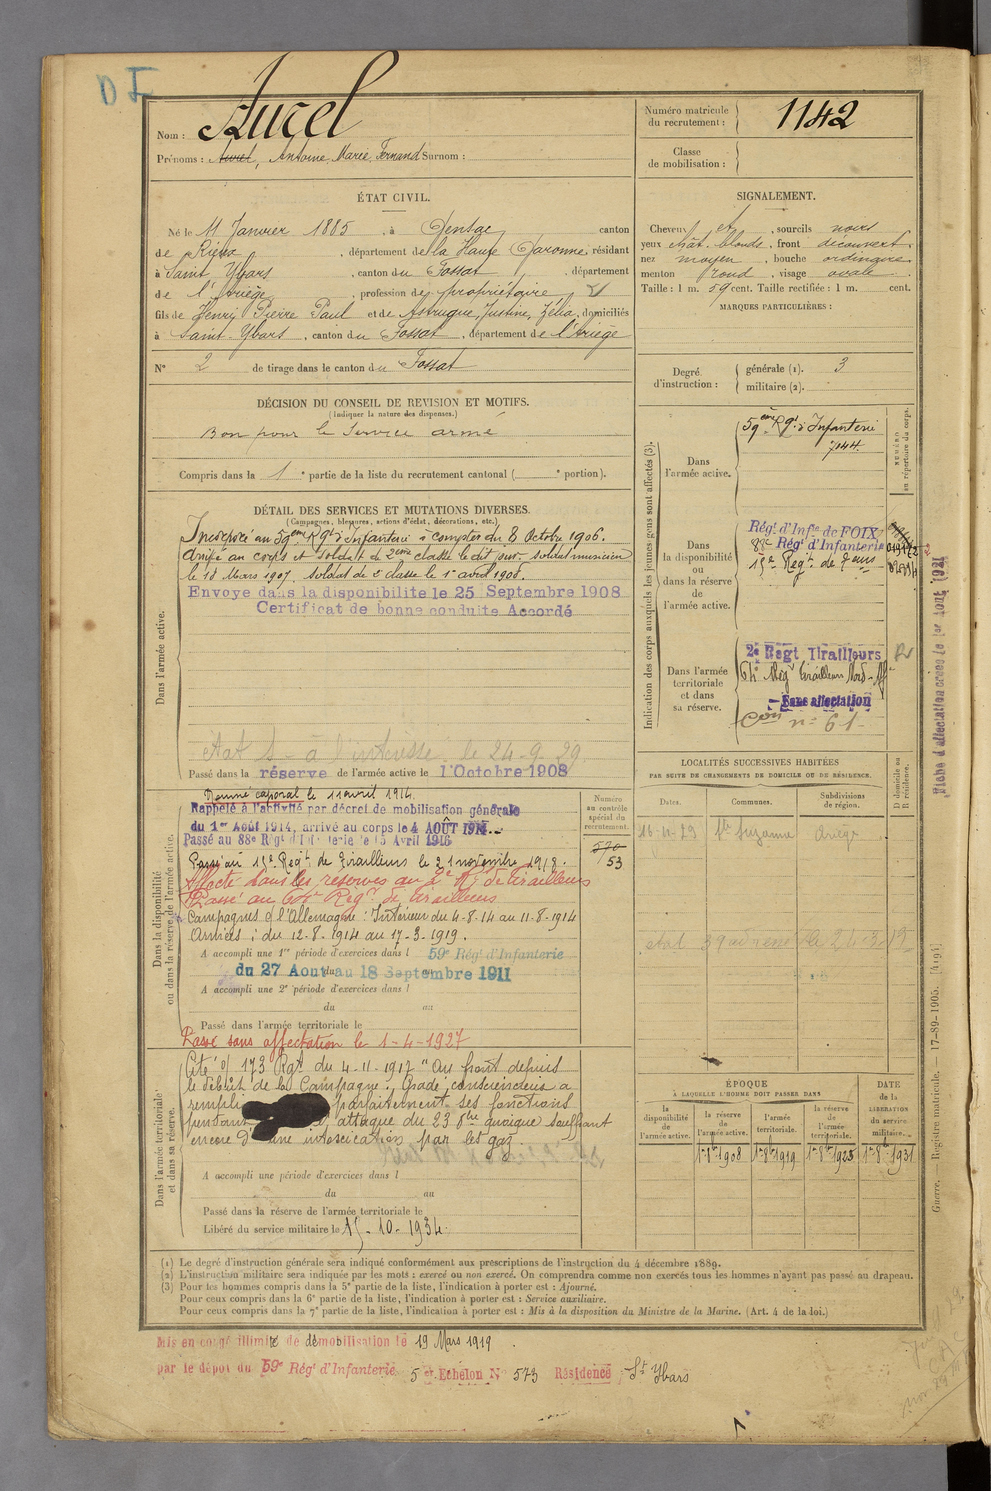 D I
Nom : Aurel
Prénoms : Aurel, Antoine Marie Fernand Surnom :
Numéro matricule du recrutement : 1142
Classe de mobilisation :
ÉTAT CIVIL.
Né le 11 Janvier 1885, à Gensac canton
de Rieux, département de la Haute Garonne, résidant
à Saint Ybars, canton du Fossat, département
de l'Ariège, profession de propriétaire
fils de Henry Pierre Paul et de Astrugue, Justine, Zélia, domiciliés
à Saint-Ybars, canton du Fossat, département de l'Ariège
N° 2 de tirage dans le canton du Fossat
SIGNALEMENT.
Cheveux et, sourcils noirs
yeux chât. blonds, front découvert
nez moyen, bouche ordinaire
menton rond, visage ovale
Taille : 1 m. 59 cent. Taille rectifiée : 1 m. cent.
MARQUES PARTICULIÈRES :
Degré d'instruction : générale (1). 3
militaire (2).
DÉCISION DU CONSEIL DE REVISION ET MOTIFS.
(Indiquer la nature des dispenses.)
Bon pour le Service armé
Compris dans la 1e partie de la liste du recrutement cantonal ( e portion).
DÉTAIL DES SERVICES ET MUTATIONS DIVERSES.
(Campagnes, blessures, actions d'éclat, décorations, etc.)
Dans l'armée active.
Incorporé au 59ème Rgt d'Infanterie à compter du 8 Octobre 1906.
Arrivé au corps et soldat de 2ème classe le dit jour. soldat musicien
le 18 Mars 1907. Soldat de 2e classe le 1er avril 1908.
Envoyé dans la disponibilité le 25 Septembre 1908
Certificat de bonne conduite Accordé
le 24-9-29
Passé dans la réserve de l'armée active le 1 Octobre 1908
Indication des corps auxquels les jeunes gens sont affectés (3).
NUMÉRO au répertoire du corps.
Dans l'armée active.
59ème Rgt d'Infanterie
7144
Dans la disponibilité ou dans la réserve de l'armée active.
Régt d'Infie de FOIX
88e Régt d'Infanterie
15e Regt de
Dans l'armée territoriale et dans sa réserve.
2e Régt Tirailleurs
Regt tirailleurs Nord-Af
Sans affectation
n° 61
Fiche d'affectation créée le 1er Août 1921
Dans la disponibilité ou dans la réserve de l'armée active.
Nommé caporal le 11 avril 1914.
Rappelé à l'activité par décret de mobilisation générale
du 1er Août 1914, arrivé au corps le 4 AOÛT 1914
Passé au 88e Régt d'Infanterie le 15 Avril 1918
Passé au 15e Regt de Tirailleurs le 21 novembre 1918.
Affecté dans les réserves au 2e Rgt de Tirailleurs
Passé au Regt de Tirailleurs
Campagnes c/ l'Allemagne : Intérieur du 4-8-14 au 11-8-1914
Armées : du 12-8-1914 au 17-3-1919.
A accompli une 1re période d'exercices dans l 59e Régt d'Infanterie
du 27 Aout au 18 Septembre 1911
A accompli une 2e période d'exercices dans l
du au
Passé dans l'armée territoriale le
Passé sans affectation le 1-4-1927
Numéro au contrôle spécial du recrutement.
53
LOCALITÉS SUCCESSIVES HABITÉES
PAR SUITE DE CHANGEMENTS DE DOMICILE OU DE RÉSIDENCE.
Dates. Communes. Subdivisions de région. D domicile ou R résidence.
16-11-23 Ste Suzanne Ariège
Dans l'armée territoriale et dans sa réserve.
Cité o/ 173 Rgt du 4-11-1917 "Au front depuis
le début de la Campagne. Gradé consciencieux a
rempli parfaitement ses fonctions
pendant attaque du 23 8bre quoique souffrant
encore d'une intoxication par les gaz
A accompli une période d'exercices dans l
du au
Passé dans la réserve de l'armée territoriale le
Libéré du service militaire le 15-10-1934
ÉPOQUE
À LAQUELLE L'HOMME DOIT PASSER DANS
la disponibilité de l'armée active.
la réserve de l'armée active.
l'armée territoriale.
la réserve de l'armée territoriale.
DATE de la LIBÉRATION du service militaire.
1er 8bre 1908 1er 8bre 1919 1er 8bre 1925 1er 8bre 1931
(1) Le degré d'instruction générale sera indiqué conformément aux prescriptions de l'instruction du 4 décembre 1889.
(2) L'instruction militaire sera indiquée par les mots : exercé ou non exercé. On comprendra comme non exercés tous les hommes n'ayant pas passé au drapeau.
(3) Pour les hommes compris dans la 5e partie de la liste, l'indication à porter est : Ajourné.
Pour ceux compris dans la 6e partie de la liste, l'indication à porter est : Service auxiliaire.
Pour ceux compris dans la 7e partie de la liste, l'indication à porter est : Mis à la disposition du Ministre de la Marine. (Art. 4 de la loi.)
Guerre. Registre matricule. — 17-89-1905. [4194]
Mis en congé illimité de démobilisation le 19 Mars 1919
par le dépôt du 59e Régt d'Infanterie 5 et Echelon N° 573 Résidence St Ybars